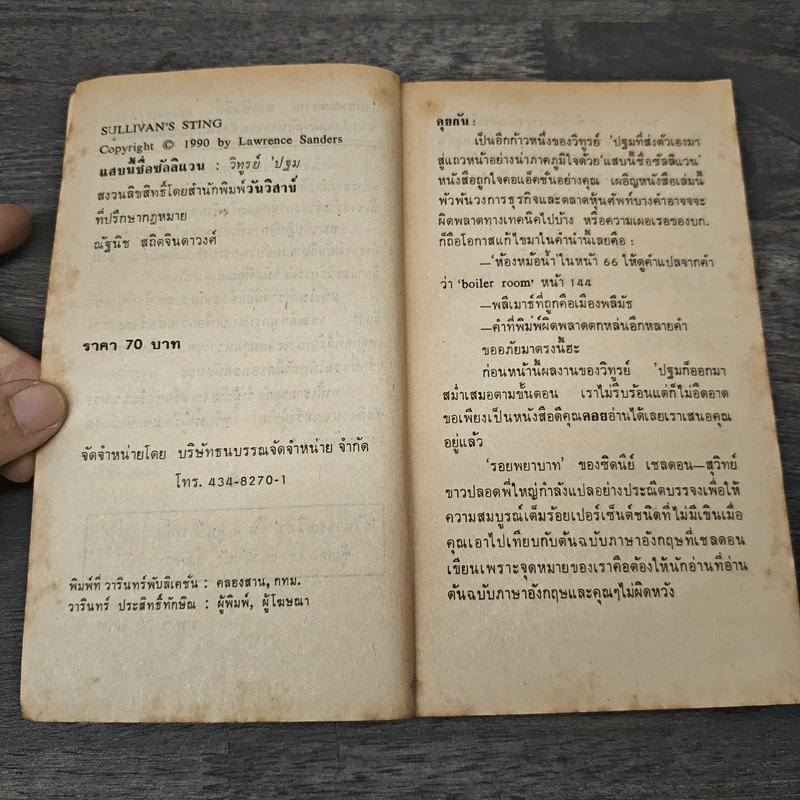 SULLIVAN'S STING
Copyright © 1990 by Lawrence Sanders
แสบนี้ชื่อซัลลิแวน : วิฑูรย์ 'ปฐม
สงวนลิขสิทธิ์โดยสำนักพิมพ์วันวิสาข์
ที่ปรึกษากฎหมาย
ณัฐนิช สถิตจินดาวงศ์
ราคา 70 บาท
จัดจำหน่ายโดย บริษัทธนบรรณจัดจำหน่าย จำกัด
โทร. 434-8270-1
พิมพ์ที่ วารินทร์พับลิเคชั่น : คลองสาน, กทม.
วารินทร์ ประสิทธิ์ทักษิณ : ผู้พิมพ์, ผู้โฆษณา
คุยกัน :
เป็นอีกก้าวหนึ่งของวิฑูรย์ 'ปฐมที่ส่งตัวเองมา
สู่แถวหน้าอย่างน่าภาคภูมิใจด้วย'แสบนี้ชื่อซัลลิแวน'
หนังสือถูกใจคอแอ็คชั่นอย่างคุณ เผอิญหนังสือเล่มนี้
พัวพันวงการธุรกิจและตลาดหุ้นศัพท์บางคำอาจจจะ
ผิดพลาดทางเทคนิคไปบ้าง หรือความเผอเรอของบก.
ก็ถือโอกาสแก้ไขมาในคำนำนี้เลยคือ :
—'ห้องหม้อน้ำ'ในหน้า 66 ให้ดูคำแปลจากคำ
ว่า 'boiler room' หน้า 144
—พลีเมาธ์ที่ถูกคือเมืองพลีมัธ
—คำที่พิมพ์ผิดพลาดตกหล่นอีกหลายคำ
ขออภัยมาตรงนี้ฮะ
ก่อนหน้านี้ผลงานของวิฑูรย์ 'ปฐมก็ออกมา
สม่ำเสมอตามขั้นตอน เราไม่รีบร้อนแต่ก็ไม่อืดอาด
ขอเพียงเป็นหนังสือดีคุณคอยอ่านได้เลยเราเสนอคุณ
อยู่แล้ว
'รอยพยาบาท' ของซิดนีย์ เชลดอน—สุวิทย์
ขาวปลอดพี่ใหญ่กำลังแปลอย่างประณีตบรรจงเพื่อให้
ความสมบูรณ์เต็มร้อยเปอร์เซ็นต์ชนิดที่ไม่มีเขินเมื่อ
คุณเอาไปเทียบกับต้นฉบับภาษาอังกฤษที่เชลดอน
เขียนเพราะจุดหมายของเราคือต้องให้นักอ่านที่อ่าน
ต้นฉบับภาษาอังกฤษและคุณๆไม่ผิดหวัง